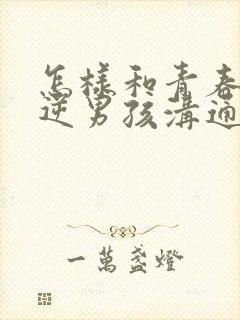 怎樣和青春
逆男孩溝通
一萬盞燈